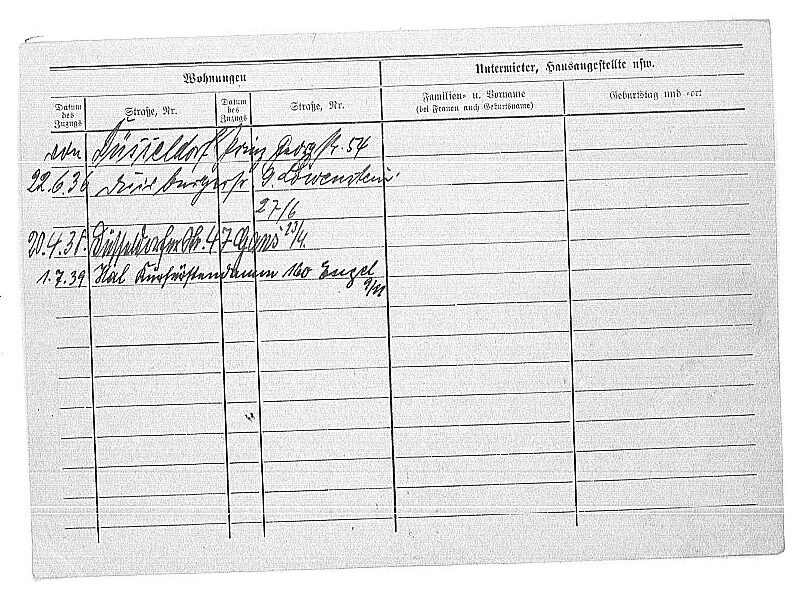 Wohnungen
Untermieter, Hausangestellte usw.
Datum des Zuzugs
Straße, Nr.
Datum des Zuzugs
Straße, Nr.
Familien- u. Vorname
(bei Frauen auch Geburtsname)
Geburtstag und -ort
von Düsseldorf Prinz Georgstr. 54
22.6.36 Duisburgerstr 9. Löwenstein
27/6
20.4.38. Düsseldorferstr. 47 Gans 23/4.
1.7.39 Hal Kurfürstendamm 160 Engel